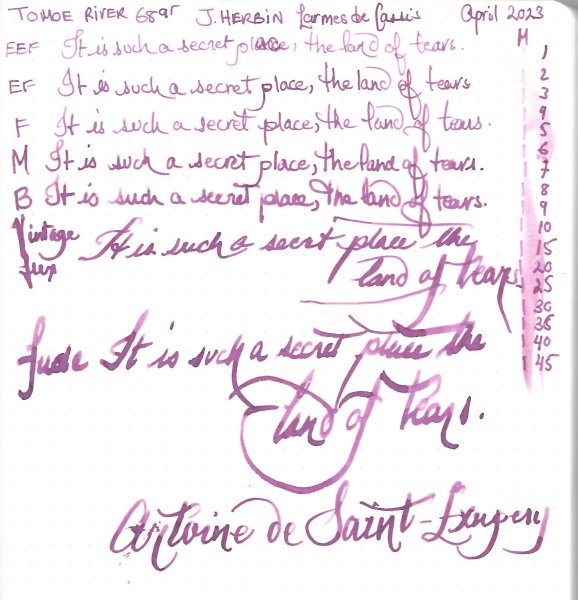 TOMOE RIVER 68gr J. HERBIN Larmes de Cassis April 2023
M
EEF It is such a secret place, the land of tears.
EF It is such a secret place, the land of tears
F It is such a secret place, the land of tears.
M It is such a secret place, the land of tears.
B It is such a secret place, the land of tears.
Vintage flex It is such a secret place the
land of tears.
Fude It is such a secret place the
land of tears.
Antoine de Saint-Exupery
1
2
3
4
5
6
7
8
9
10
15
20
25
30
35
40
45